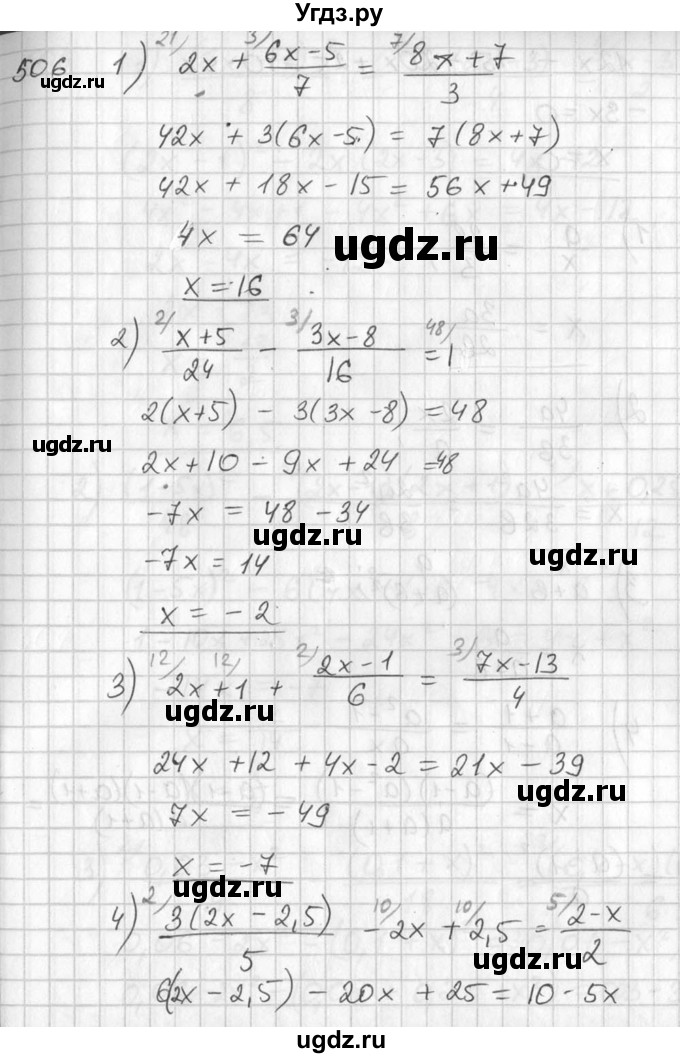 Угдз.ру
506 1) 21/ 2x + 3/ (6x-5)/7 = 7/ (8x+7)/3
ugdz.ru ugdz.ru
42x + 3(6x-5) = 7(8x+7)
42x + 18x - 15 = 56x + 49
ugdz.ru
4x = 64
ugdz.ru
x = 16
2) 2/ (x+5)/24 - 3/ (3x-8)/16 = 1 48/
2(x+5) - 3(3x-8) = 48
ugdz.ru
2x + 10 - 9x + 24 = 48
-7x = 48 - 34
ugdz.ru ugdz.ru
-7x = 14
x = -2
3) 12/ 2x + 12/ 1 + 2/ (2x-1)/6 = 3/ (7x-13)/4
ugdz.ru ugdz.ru
24x + 12 + 4x - 2 = 21x - 39
ugdz.ru
7x = -49
x = -7
ugdz.ru
4) 2/ 3(2x-2,5)/5 - 10/ 2x + 10/ 2,5 = 5/ (2-x)/2
ugdz.ru
6(2x-2,5) - 20x + 25 = 10 - 5x
ugdz.ru